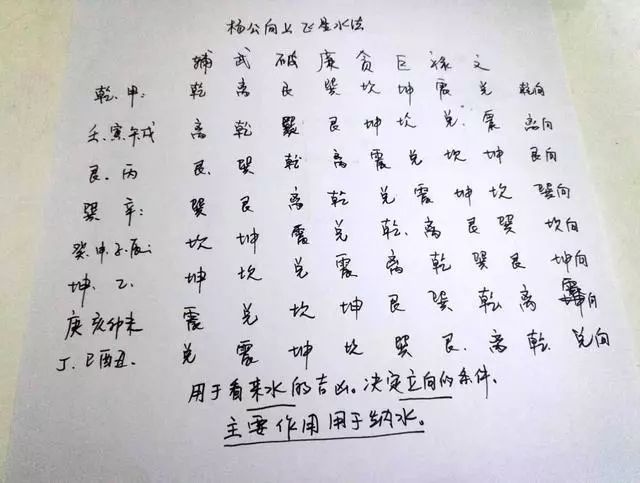 杨公向上飞星水法
辅 武 破 廉 贪 巨 禄 文
乾.甲: 乾 离 艮 巽 坎 坤 震 兑 乾向
壬.寅午戌 离 乾 巽 艮 坤 坎 兑. 震 离向
艮.丙 艮. 巽 乾 离 震 兑 坎 坤 艮向
巽 辛: 巽 艮 离 乾 兑 震 坤 坎 巽向
癸.申.子.辰: 坎 坤 震 兑 乾. 离 艮 巽 坎向
坤.乙. 坤 坎 兑 震 离 乾 巽 艮 坤向
庚亥卯未 震 兑 坎 坤 艮 巽 乾 离 震向
丁.巳酉丑. 兑 震 坤 坎 巽 艮. 离 乾. 兑向
用于看来水的吉凶。决定立向的条件.
主要作用用于纳水。